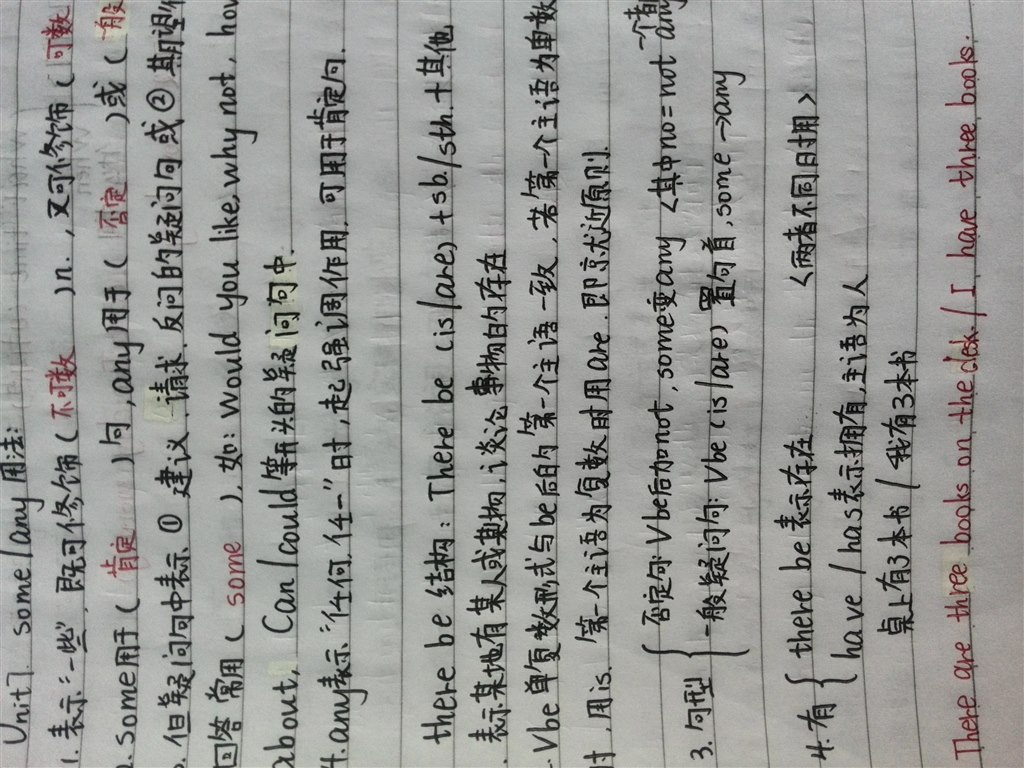 Unit7 some/any 用法:
1. 表示"一些", 既可修饰( 不可数 )n., 又可修饰( 可数
2. some用于( 肯定 )句, any用于( 否定 )或( 般
3. 但疑问句中表示 ① 建议、请求、反问的疑问句 或 ② 期望
回答 常用( some ). 如: Would you like, why not, how
about, Can/could等开头的疑问句中.
4. any表示"任何, 任一"时, 起强调作用, 可用于肯定句.
there be 结构: There be (is/are) + sb./sth. + 其他
表示某地有某人或某物, 谈论事物的存在
Vbe 单复数形式与be后的第一个主语一致, 若第一个主语为单数
时, 用is. 第一个主语为复数时用are. 即就近原则.
3. 句型 { 否定句: Vbe后加not, some变any <其中no = not any
一般疑问句: Vbe (is/are) 置句首, some→any
4. 有 { there be 表示存在 <两者不同时用>
have/has表示拥有, 主语为人
桌上有3本书 / 我有3本书
There are three books on the desk / I have three books.